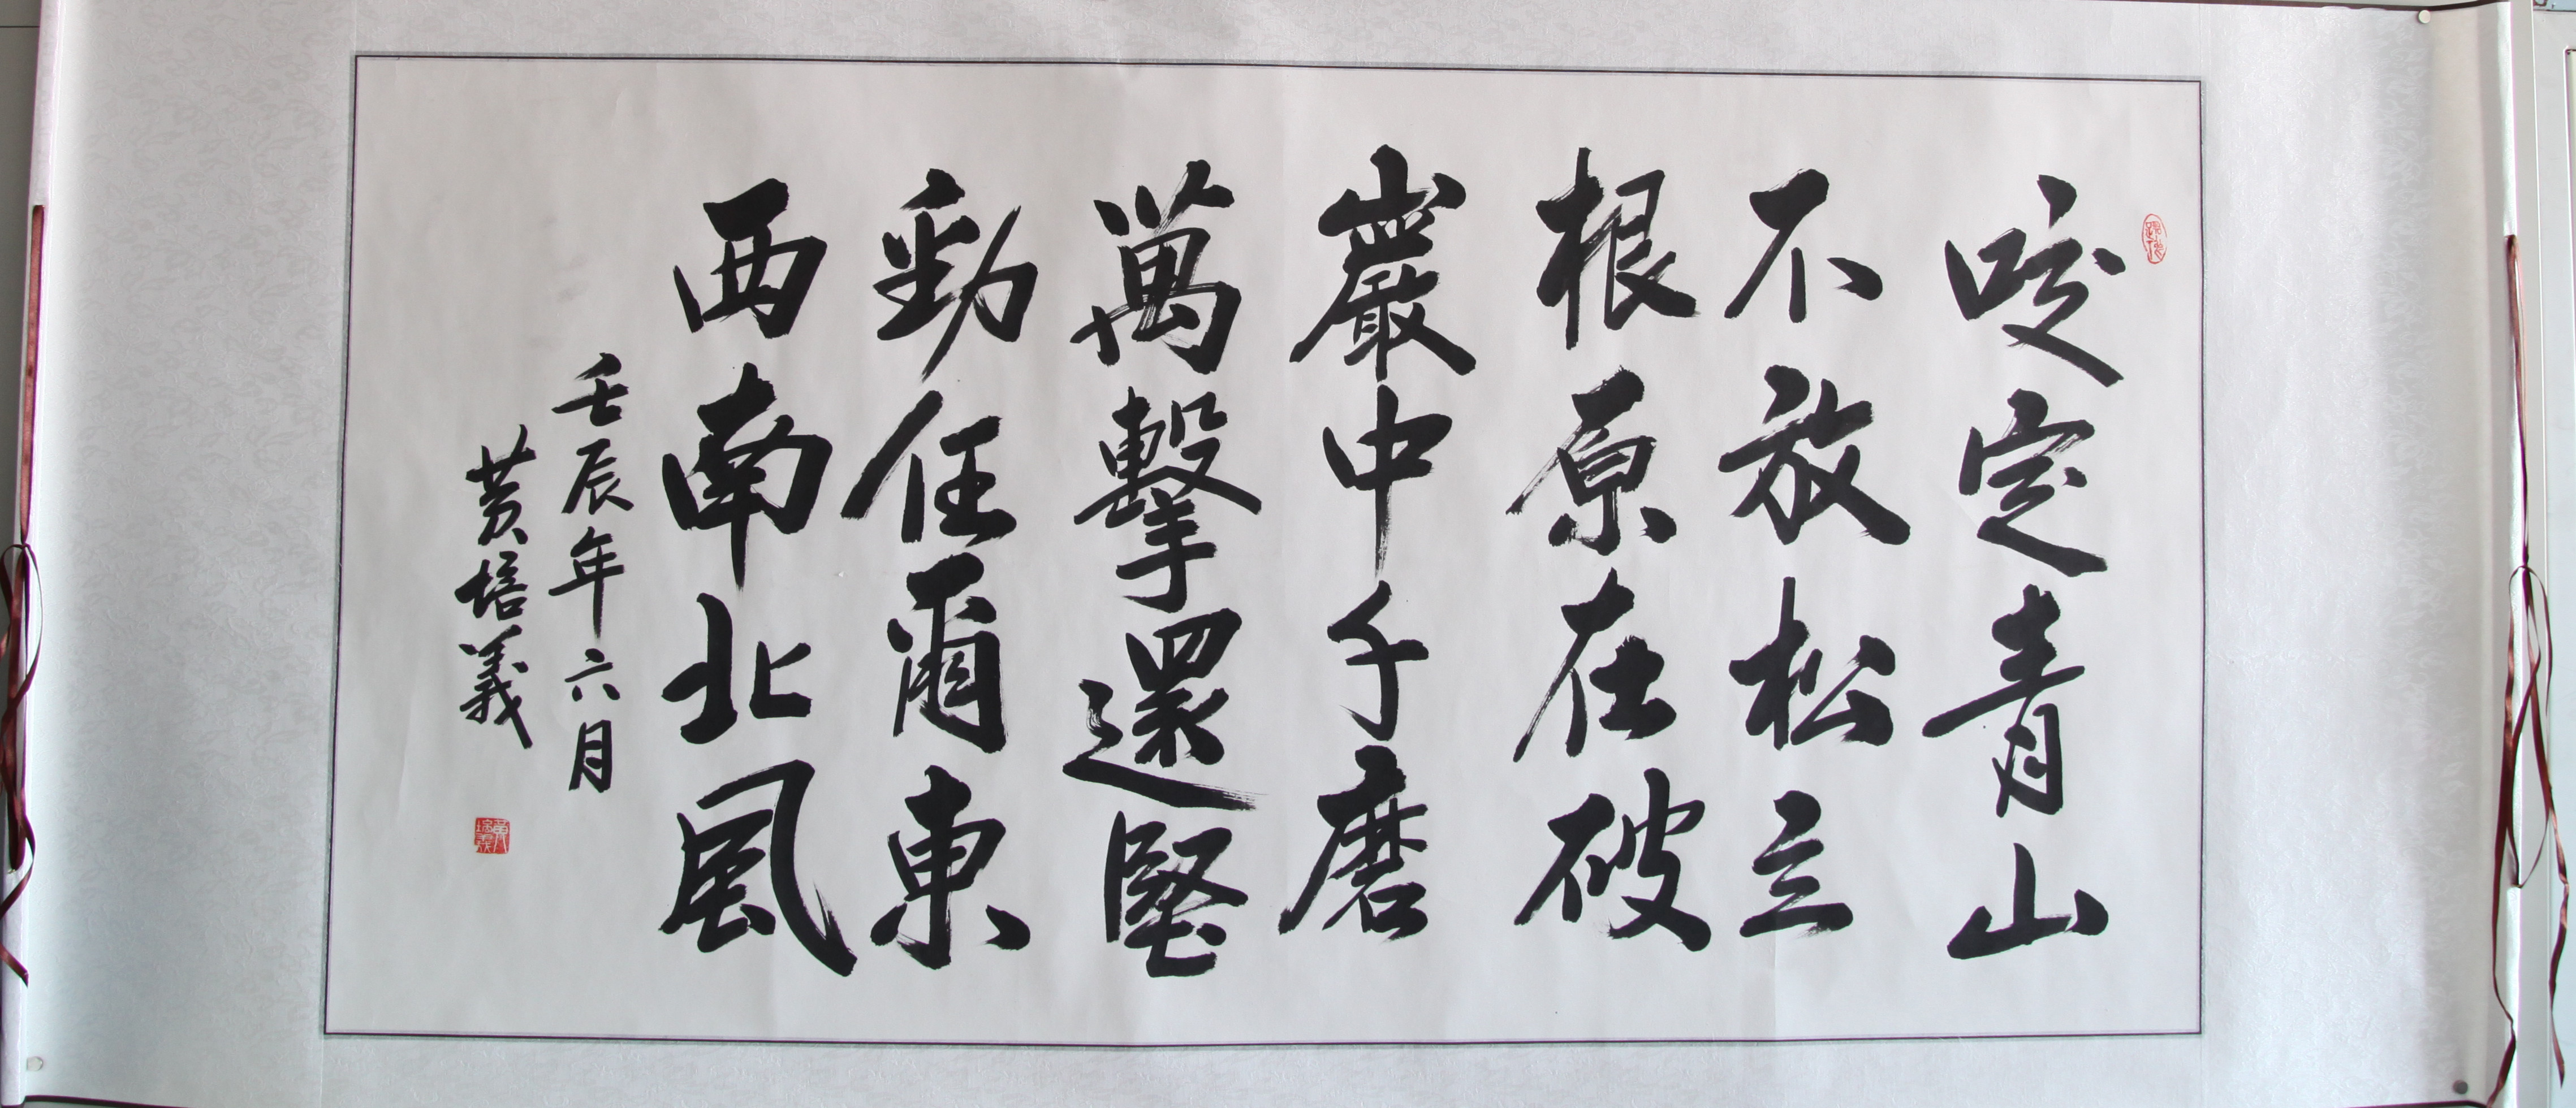 咬定青山
不放松立
根原在破
巖中千磨
萬擊還堅
勁任爾東
西南北風
壬辰年六月
黄培義